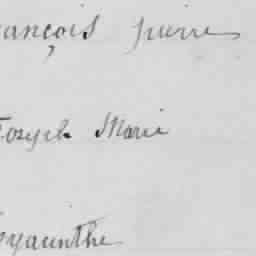 rançois pierre
Joseph Marie
hyacinthe